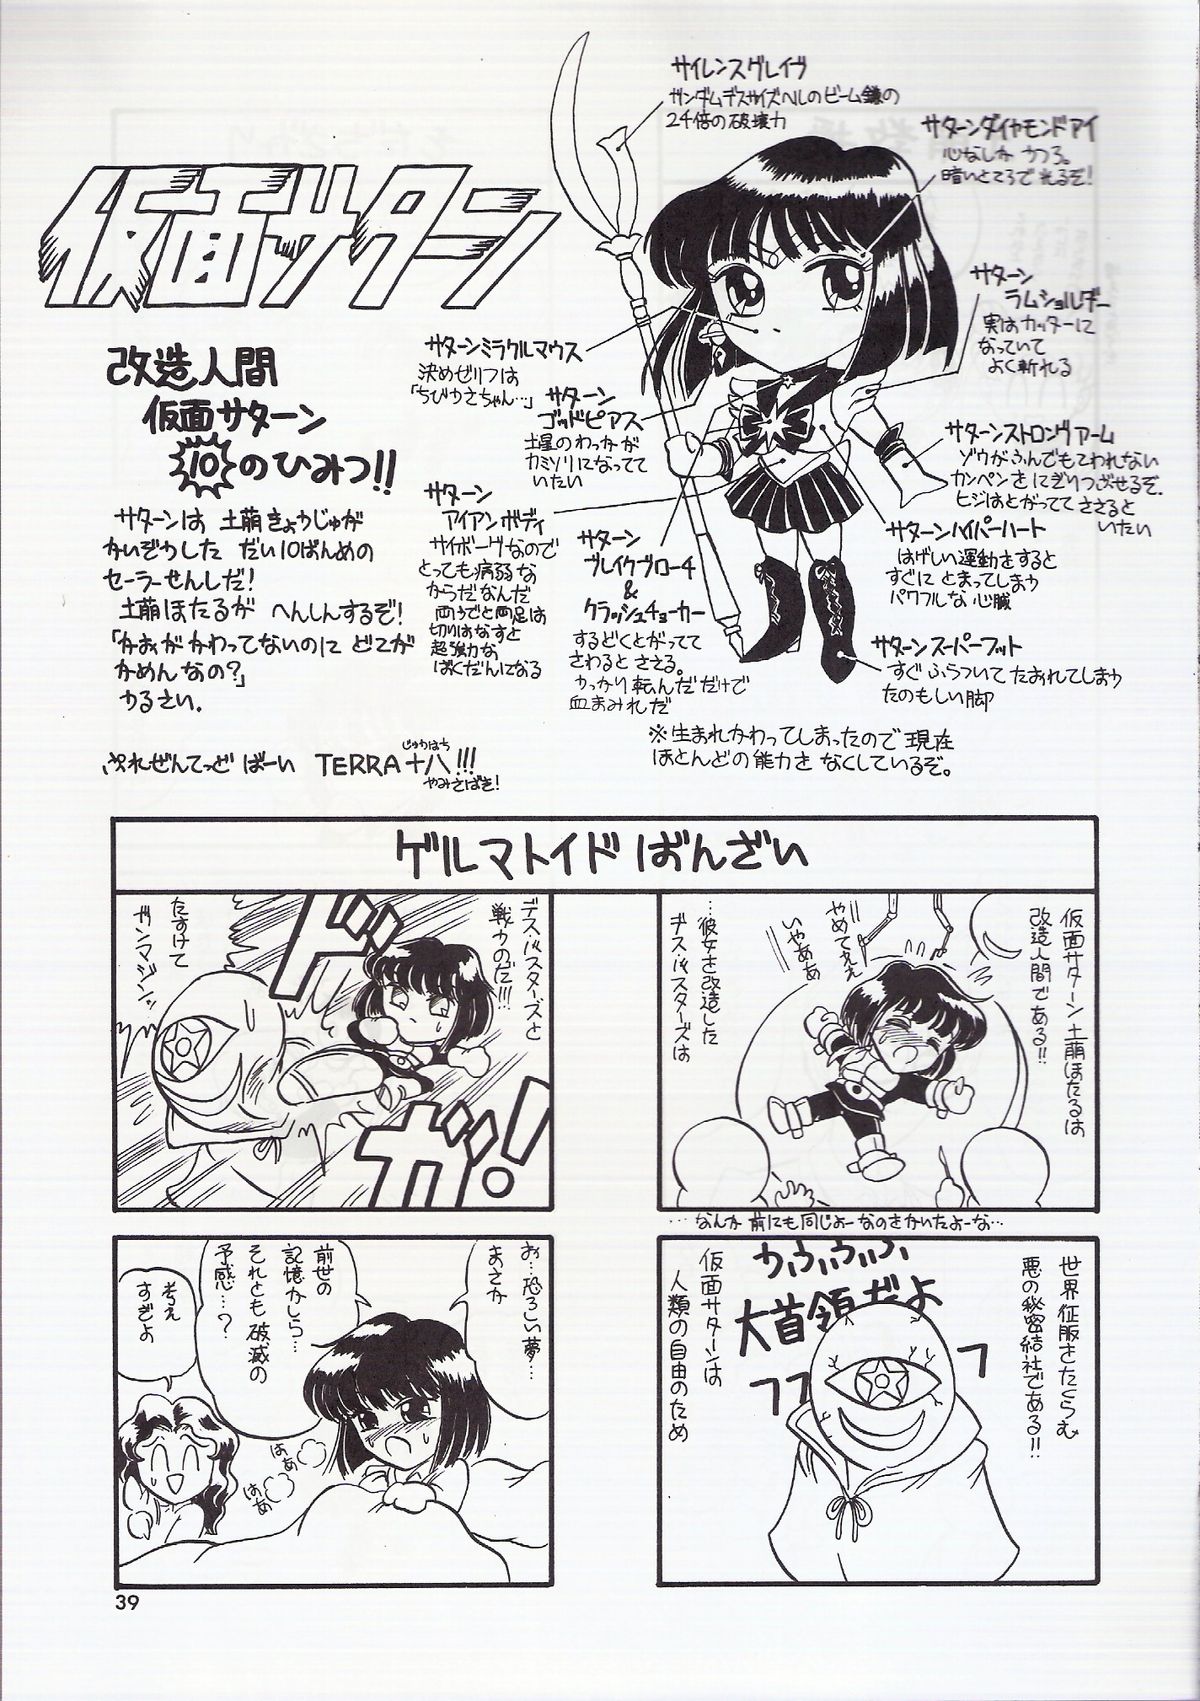 仮面サターン
改造人間
仮面サターン
10のひみつ!!
サターンは 土萌きょうじゅが
かいぞうした だい10ばんめの
セーラーせんしだ!
土萌ほたるが へんしんするぞ!
「かおがかわってないのに どこが
かめんなの?」
うるさい.
ぷれぜんてっど ばーい TERRA十八!!!
じゅうはち
やみさばき!
サイレンスグレイヴ
ガンダムデスサイズヘルのビーム鎌の
24倍の破壊力
サターンダイヤモンドアイ
心なしか うつろ。
暗いところで光るぞ!
サターン
ラムショルダー
実はカッターに
なっていて
よく斬れる
サターンミラクルマウス
決めぜリフは
「ちびうさちゃん…」
サターン
ゴッドピアス
土星のわっかが
カミソリになってて
いたい
サターンストロングアーム
ゾウがふんでもこわれない
カンペンをにぎりつぶせるぞ.
ヒジはとがってて ささると
いたい
サターン
アイアンボディ
サイボーグなので
とっても病弱な
からだなんだ
両うでと両足は
切りはなすと
超強力な
ばくだんになる
サターン
ブレイクブローチ
&
クラッシュチョーカー
するどくとがってて
さわると ささる。
うっかり転んだだけで
血まみれだ
サターンハイパーハート
はげしい運動をすると
すぐに とまってしまう
パワフルな心臓
サターンスーパーフット
すぐ ふらついて たおれてしまう
たのもしい脚
※生まれかわってしまったので現在
ほとんどの能力を なくしているぞ。
ゲルマトイドばんざい
仮面サターン土萌ほたるは
改造人間である!!
やめてぇぇ
いやああ
…彼女を改造した
デス・バスターズは
…なんか前にも同じよーなのをかいたよーな…
世界征服をたくらむ
悪の秘密結社である!!
うふふふふ
大首領だよ
フ
フフ
仮面サターンは
人類の自由のため
デス・バスターズと
戦うのだ!!!
ドガガ!
たすけて
ガンマジンッ
お…恐ろしい夢…
まさか
前世の
記憶かしら…
それとも破滅の
予感…?
はあ
はあ
考え
すぎよ
39